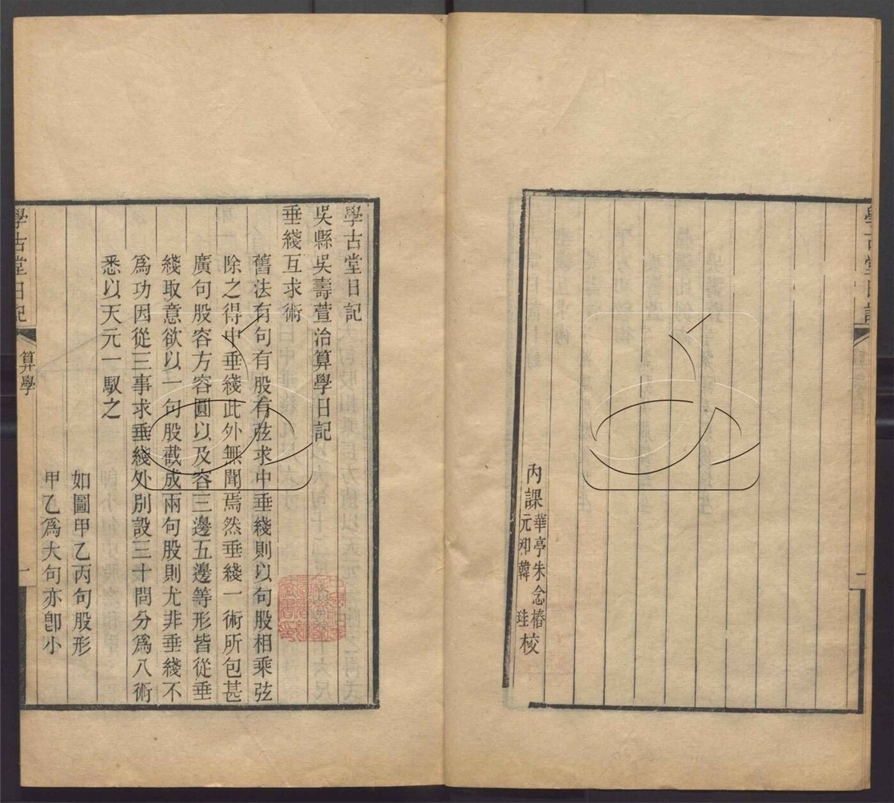 學古堂日記
內課
華亭朱念椿
元和韓　珪
校
學古堂日記
吳縣吳壽萱治算學日記
垂綫互求術
舊法有句有股有弦求中垂綫則以句股相乘弦
除之得中垂綫此外無聞焉然垂綫一術所包甚
廣句股容方容圓以及容三邊五邊等形皆從垂
綫取意欲以一句股截成兩句股則尤非垂綫不
為功因從三事求垂綫外別設三十問分為八術
悉以天元一馭之
如圖甲乙丙句股形
甲乙為大句亦卽小
學古堂日記
算學
一